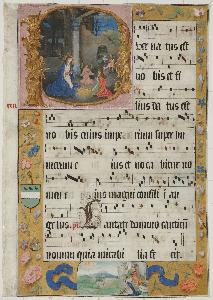 er na tus est
no bis et fi
lius da tus est
no bis cuius impe rium super hu
merum e ius et voca bitur no
men e ius magni consili i an
gelus ps Cantate domino canticum
novum quia mirabi lia fe cit